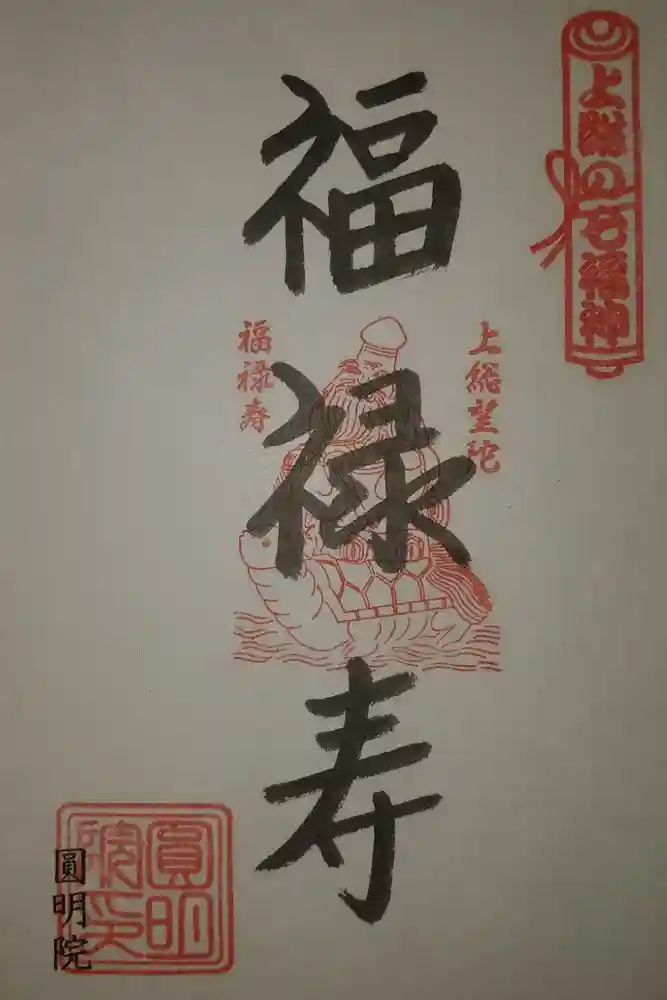 上総の七福神
上総望陀
福禄寿
福禄寿
圓明院
圓明院印